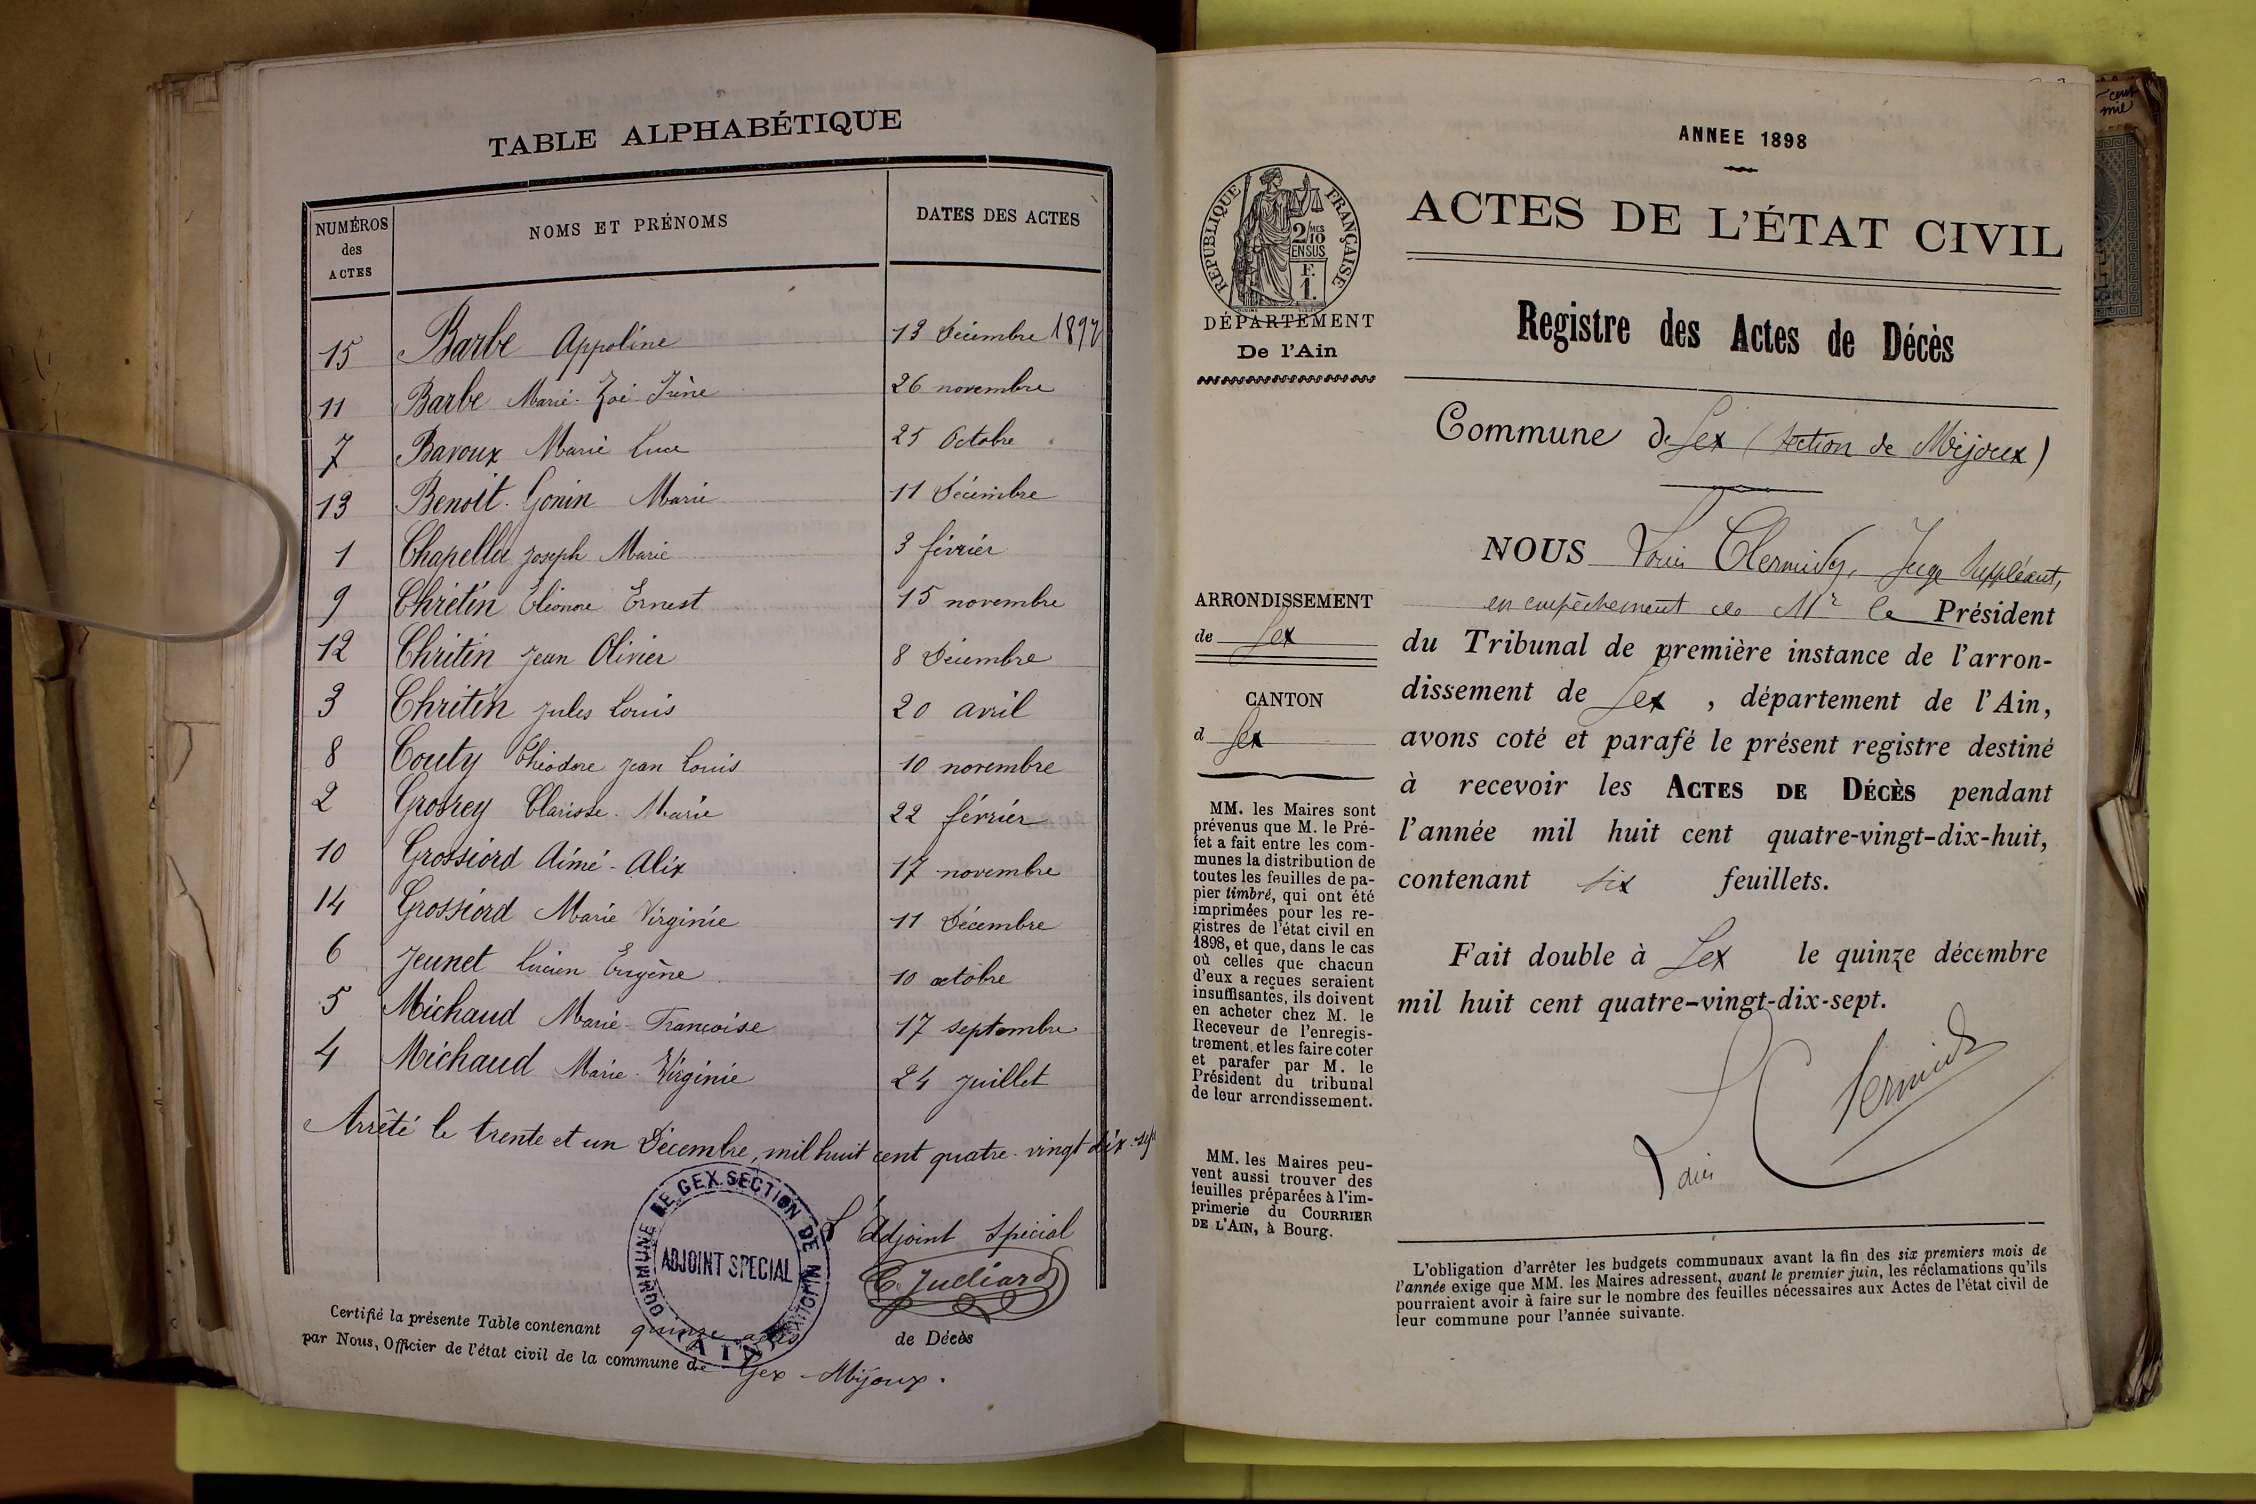 TABLE ALPHABÉTIQUE
NUMÉROS des ACTES NOMS ET PRÉNOMS DATES DES ACTES
15 Barbe Appoline 13 Décembre 1897
11 Barbe Marie-Zoé-Irène 26 novembre
7 Bavoux Marie Luce 25 Octobre
13 Benoit-Gonin Marie 11 Décembre
1 Chapellu Joseph Marie 3 février
9 Chrétin Eléonore Ernest 15 novembre
12 Chritin Jean Olivier 8 Décembre
3 Chritin Jules Louis 20 avril
8 Couty Théodore Jean Louis 10 novembre
2 Grosrey Clarisse-Marie 22 février
10 Grossiord Aimé-Alix 17 novembre
14 Grossiord Marie Virginie 11 Décembre
6 Jeunet Lucien Eugène 10 octobre
5 Michaud Marie-Françoise 17 septembre
4 Michaud Marie-Virginie 24 Juillet
Arrêté le trente et un Décembre, mil huit cent quatre-vingt dix-sept
L'Adjoint Spécial
COMMUNE DE GEX SECTION DE MIJOUX
ADJOINT SPECIAL
AIN
C. Julliard
Certifié la présente Table contenant quinze actes de Décès
par Nous, Officier de l'état civil de la commune de Gex-Mijoux.
cent
mil
ANNEE 1898
RÉPUBLIQUE FRANÇAISE
2 MES
/10
EN SUS
F.
1.
ACTES DE L'ÉTAT CIVIL
DÉPARTEMENT
De l'Ain
Registre des Actes de Décès
Commune de Gex (section de Mijoux)
NOUS Louis Clermidy, Juge Suppléant,
en empêchement de Mr le Président
du Tribunal de première instance de l'arron-
dissement de Gex, département de l'Ain,
avons coté et parafé le présent registre destiné
à recevoir les ACTES DE DÉCÈS pendant
l'année mil huit cent quatre-vingt-dix-huit,
contenant six feuillets.
Fait double à Gex le quinze décembre
mil huit cent quatre-vingt-dix-sept.
Louis Clermidy
ARRONDISSEMENT
de Gex
CANTON
d Gex
MM. les Maires sont
prévenus que M. le Pré-
fet a fait entre les com-
munes la distribution de
toutes les feuilles de pa-
pier timbré, qui ont été
imprimées pour les re-
gistres de l'état civil en
1898, et que, dans le cas
où celles que chacun
d'eux a reçues seraient
insuffisantes, ils doivent
en acheter chez M. le
Receveur de l'enregis-
trement, et les faire coter
et parafer par M. le
Président du tribunal
de leur arrondissement.
MM. les Maires peu-
vent aussi trouver des
feuilles préparées à l'im-
primerie du COURRIER
DE L'AIN, à Bourg.
L'obligation d'arrêter les budgets communaux avant la fin des six premiers mois de
l'année exige que MM. les Maires adressent, avant le premier juin, les réclamations qu'ils
pourraient avoir à faire sur le nombre des feuilles nécessaires aux Actes de l'état civil de
leur commune pour l'année suivante.